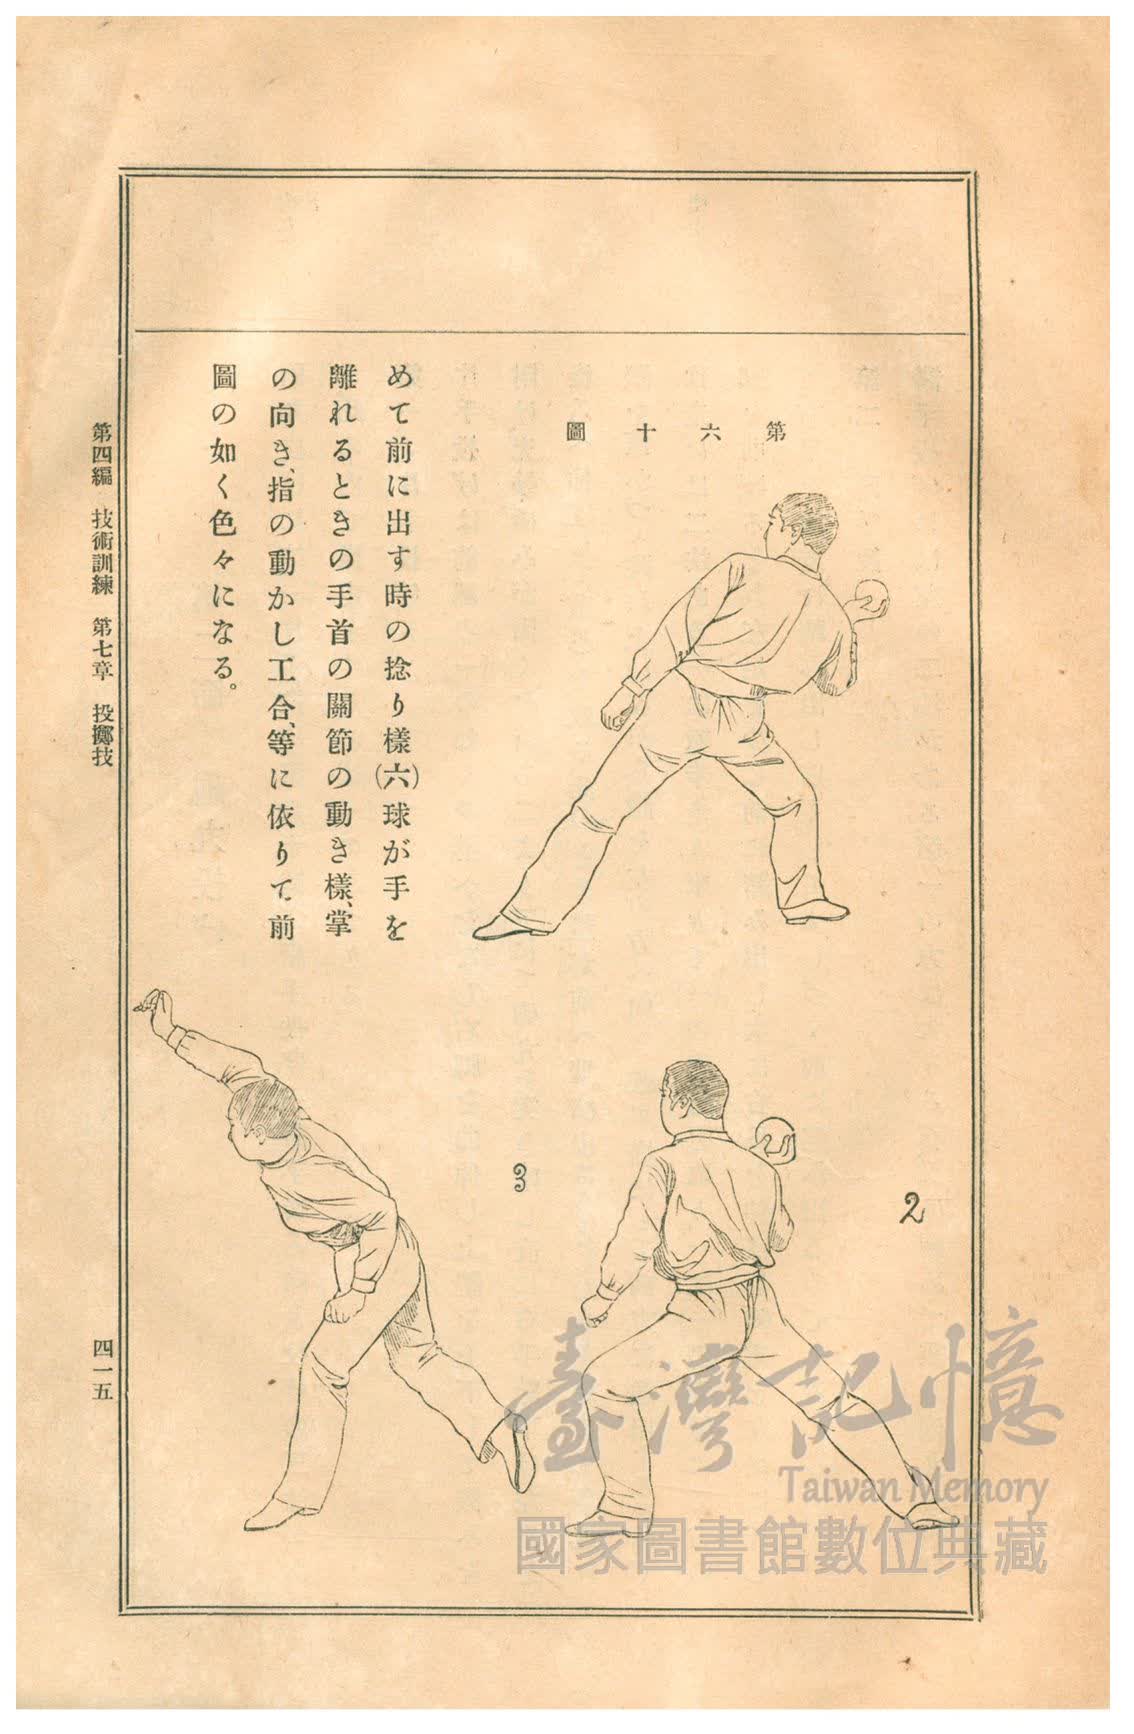 第六十圖
めて前に出す時の捻り樣(六)球が手を
離れるときの手首の關節の動き樣、掌
の向き、指の動かし工合、等に依りて前
圖の如く色々になる。
2
3
第四編 技術訓練 第七章 投擲技
四一五
臺灣記憶
Taiwan Memory
國家圖書館數位典藏